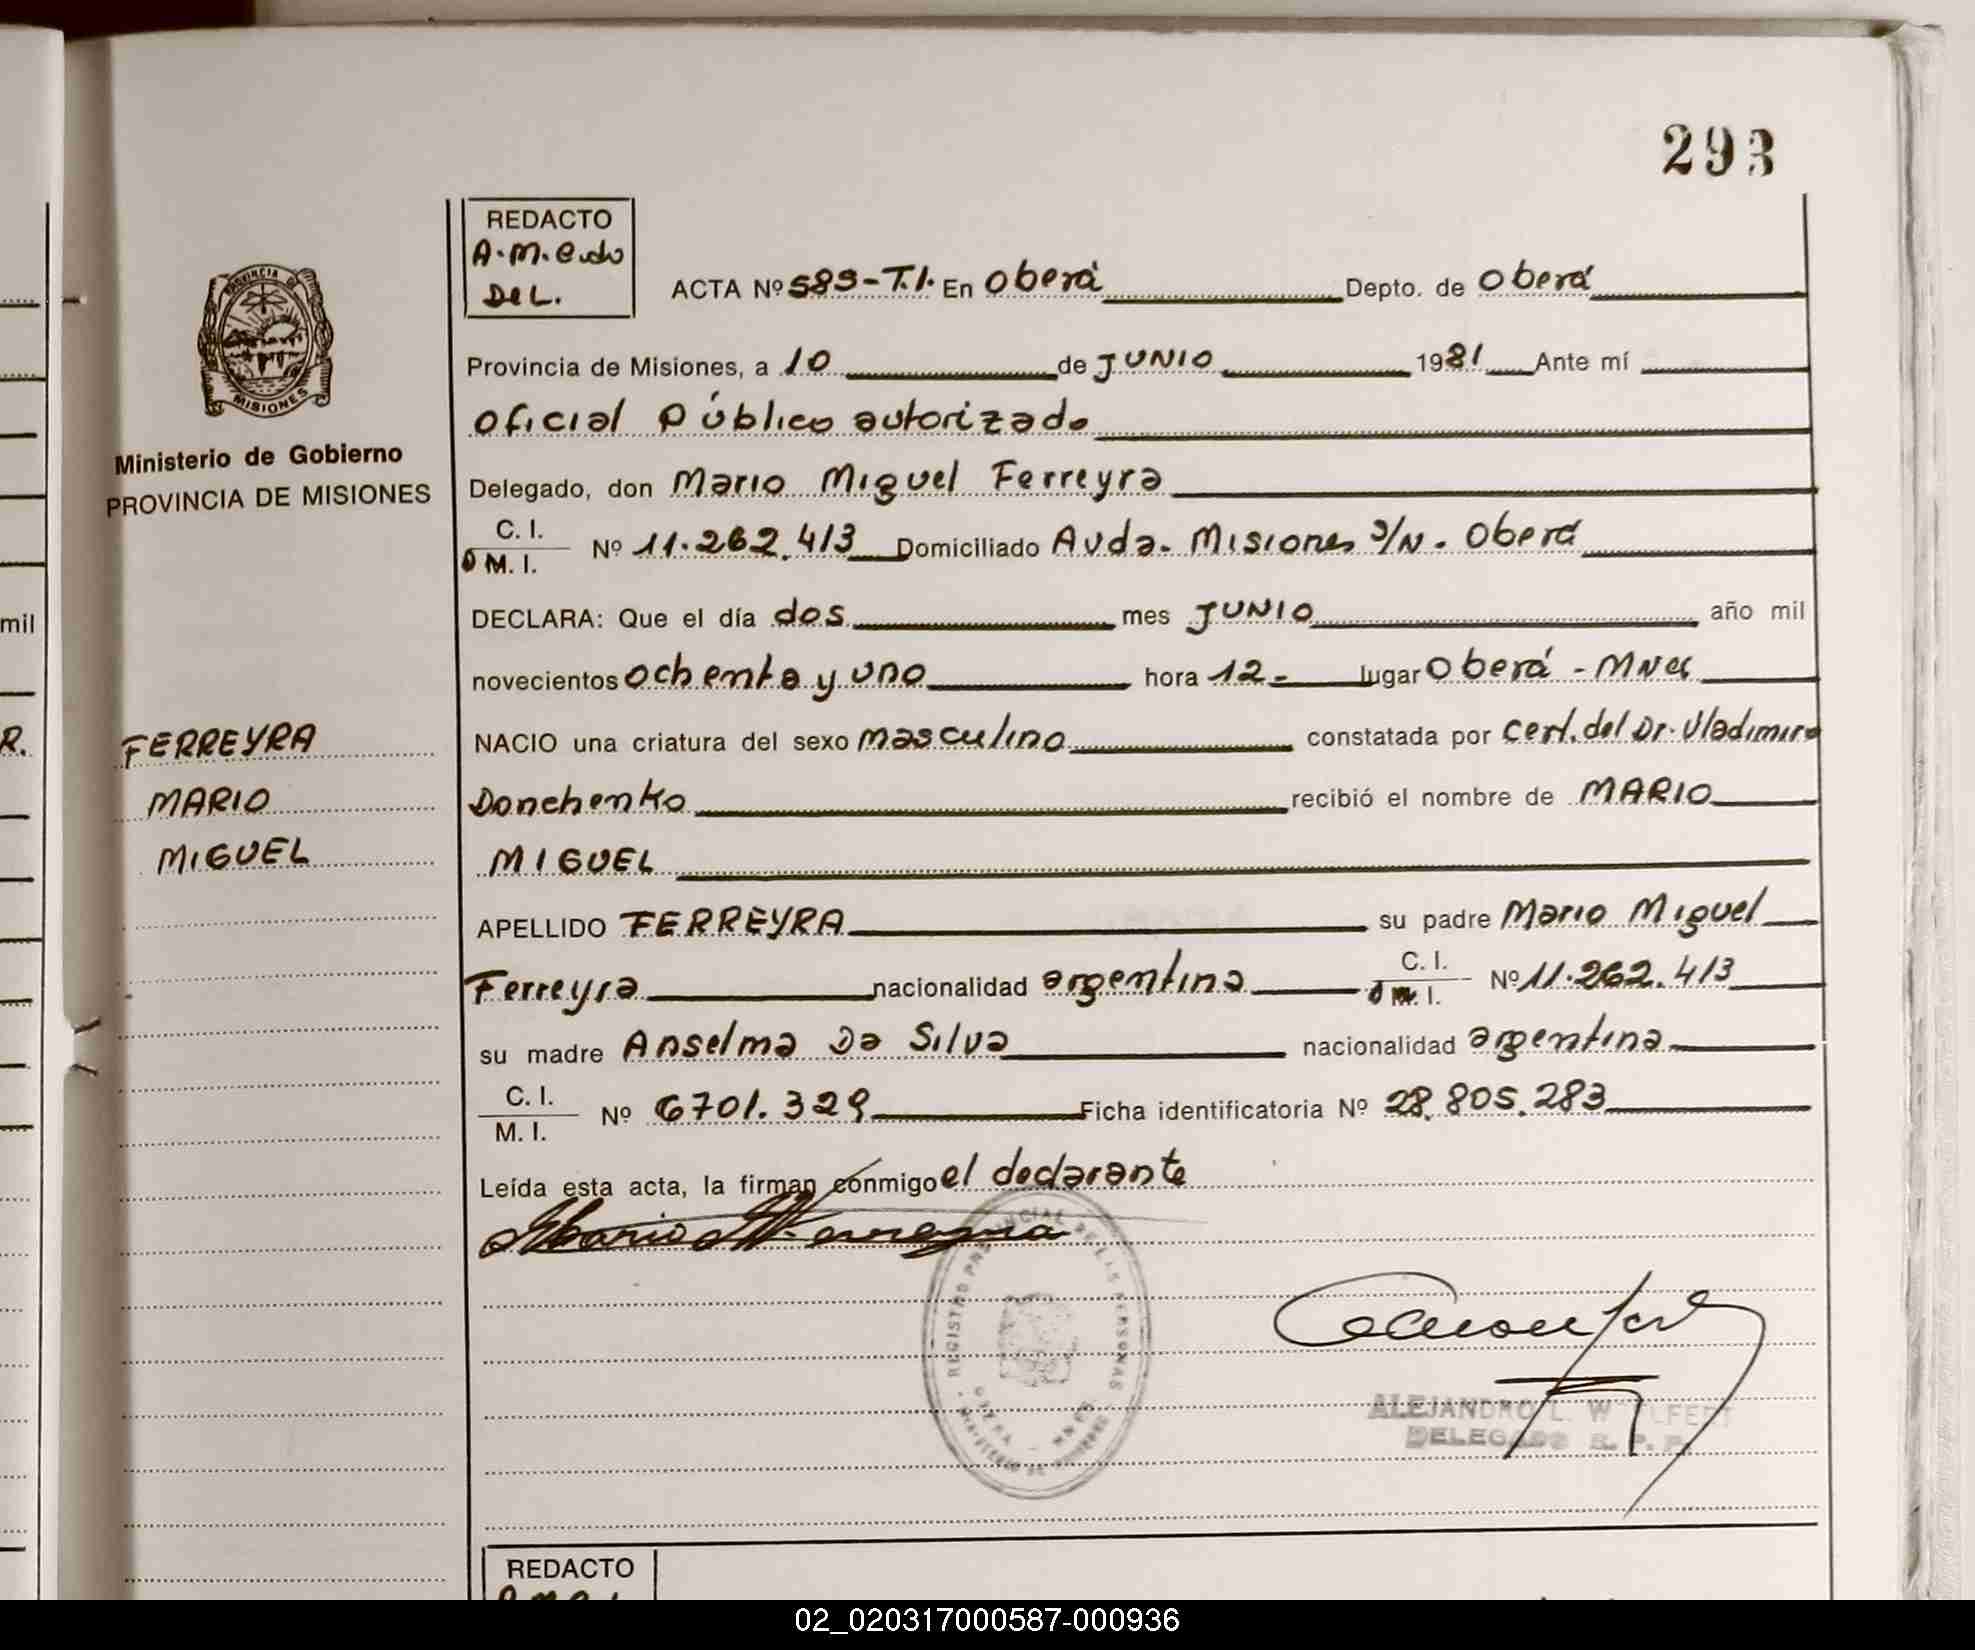 293
REDACTO
A.M.
DEL.
ACTA Nº 589-T.I. En Oberá Depto. de Oberá
PROVINCIA DE
MISIONES
Provincia de Misiones, a 10 de JUNIO 1981 Ante mí
Oficial Público autorizado
Ministerio de Gobierno
PROVINCIA DE MISIONES
Delegado, don Mario Miguel Ferreyra
C. I.
M. I.
Nº 11.262.413 Domiciliado Avda. Misiones S/N. Oberá
DECLARA: Que el día dos mes JUNIO año mil
novecientos ochenta y uno hora 12- lugar Oberá - Mnes
FERREYRA
MARIO
MIGUEL
NACIO una criatura del sexo masculino constatada por cert. del Dr. Vladimiro
Donchenko recibió el nombre de MARIO
MIGUEL
APELLIDO FERREYRA su padre Mario Miguel
Ferreyra nacionalidad argentina C. I. M. I. Nº 11.262.413
su madre Anselma Da Silva nacionalidad argentina
C. I.
M. I.
Nº 6701.329 Ficha identificatoria Nº 28.805.283
Leída esta acta, la firman conmigo el declarante
Mario M. Ferreyra
REGISTRO PROVINCIAL DE LAS PERSONAS
ALEJANDRO L.
DELEGADO R. P. P.
REDACTO
mil
R.
02_020317000587-000936